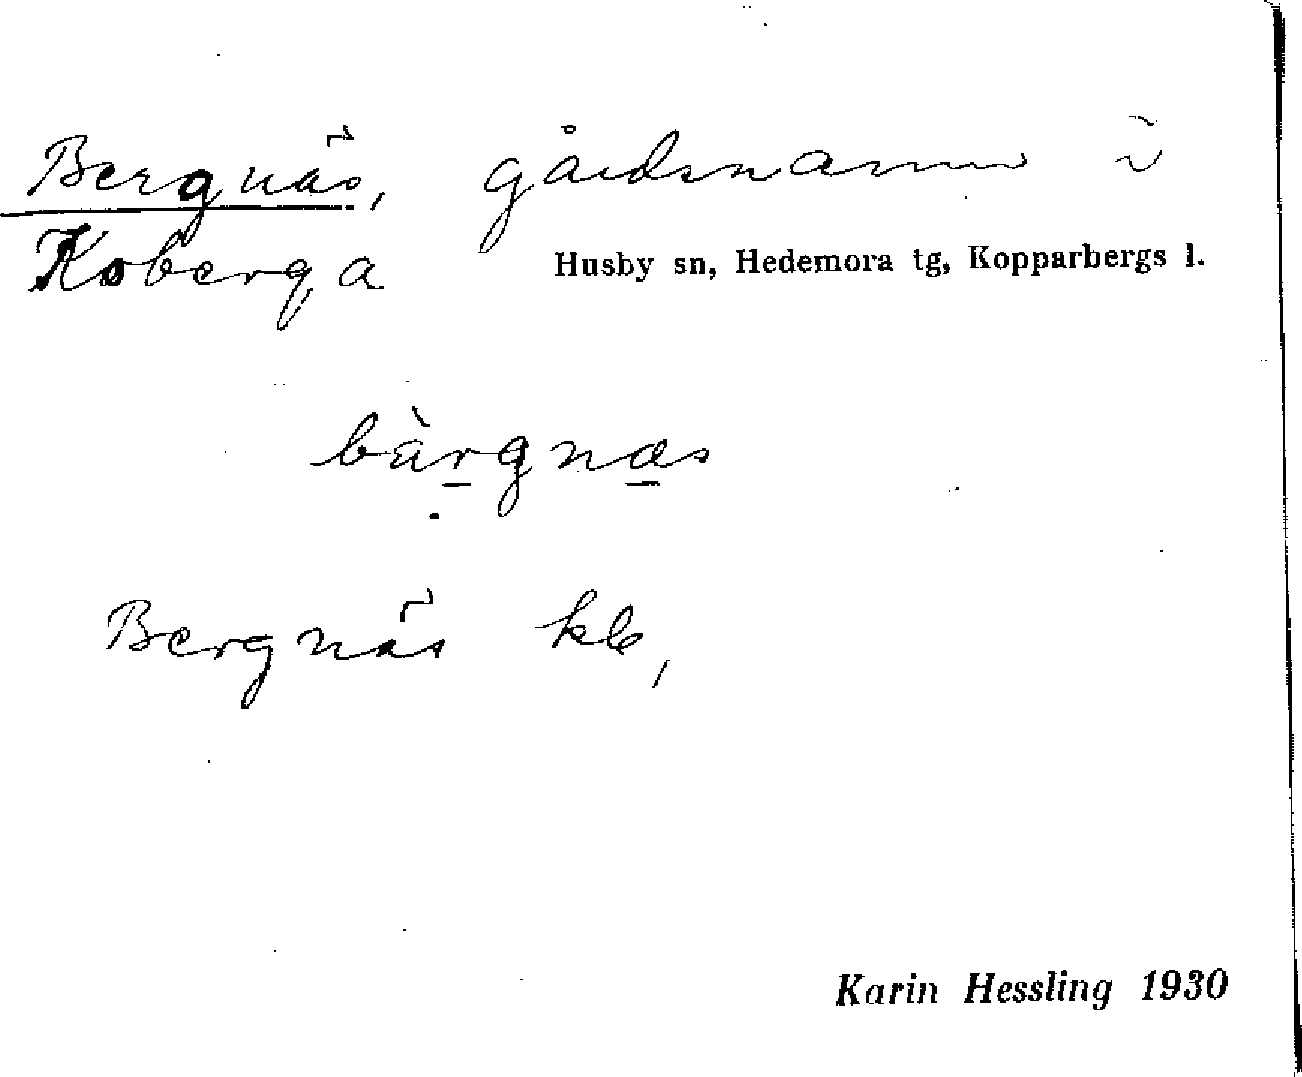 Bergnäs, gårdsnamn i
Koberga Husby sn, Hedemora tg, Kopparbergs l.
bàrgnæs
Bergnäs
Karin Hessling 1930